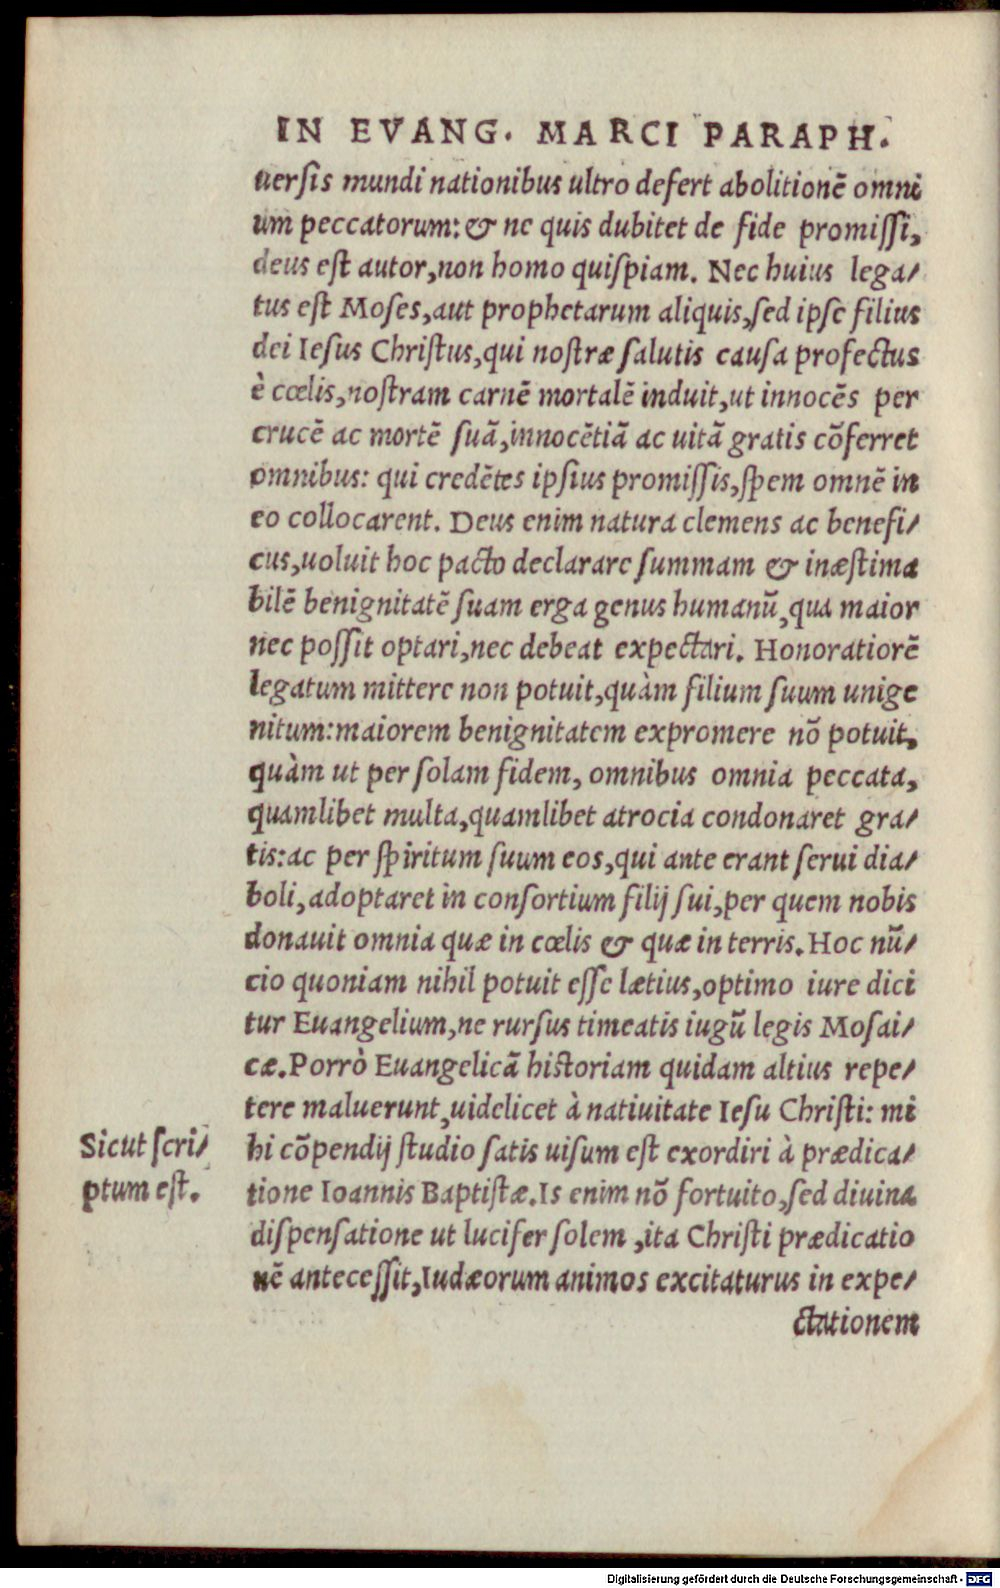 IN EVANG. MARCI PARAPH.
uersis mundi nationibus ultro defert abolitionē omni
um peccatorum: & ne quis dubitet de fide promissi,
deus est autor, non homo quispiam. Nec huius lega/
tus est Moses, aut prophetarum aliquis, sed ipse filius
dei Iesus Christus, qui nostræ salutis causa profectus
è cœlis, nostram carnē mortalē induit, ut innocēs per
crucē ac mortē suā, innocētiā ac uitā gratis cōferret
omnibus: qui credētes ipsius promissis, spem omnē in
eo collocarent. Deus enim natura clemens ac benefi/
cus, uoluit hoc pacto declarare summam & inæstima
bilē benignitatē suam erga genus humanū, qua maior
nec possit optari, nec debeat expectari. Honoratiorē
legatum mittere non potuit, quàm filium suum unige
nitum: maiorem benignitatem expromere nō potuit,
quàm ut per solam fidem, omnibus omnia peccata,
quamlibet multa, quamlibet atrocia condonaret gra/
tis: ac per spiritum suum eos, qui ante erant serui dia/
boli, adoptaret in consortium filij sui, per quem nobis
donauit omnia quæ in cœlis & quæ in terris. Hoc nū/
cio quoniam nihil potuit esse lætius, optimo iure dici
tur Euangelium, ne rursus timeatis iugū legis Mosai/
cæ. Porrò Euangelicā historiam quidam altius repe/
tere maluerunt, uidelicet à natiuitate Iesu Christi: mi
hi cōpendij studio satis uisum est exordiri à prædica/
tione Ioannis Baptistæ. Is enim nō fortuito, sed diuina
dispensatione ut lucifer solem, ita Christi prædicatio
nē antecessit, Iudæorum animos excitaturus in expe/
ctationem
Sicut scri/
ptum est.
Digitalisierung gefördert durch die Deutsche Forschungsgemeinschaft - DFG